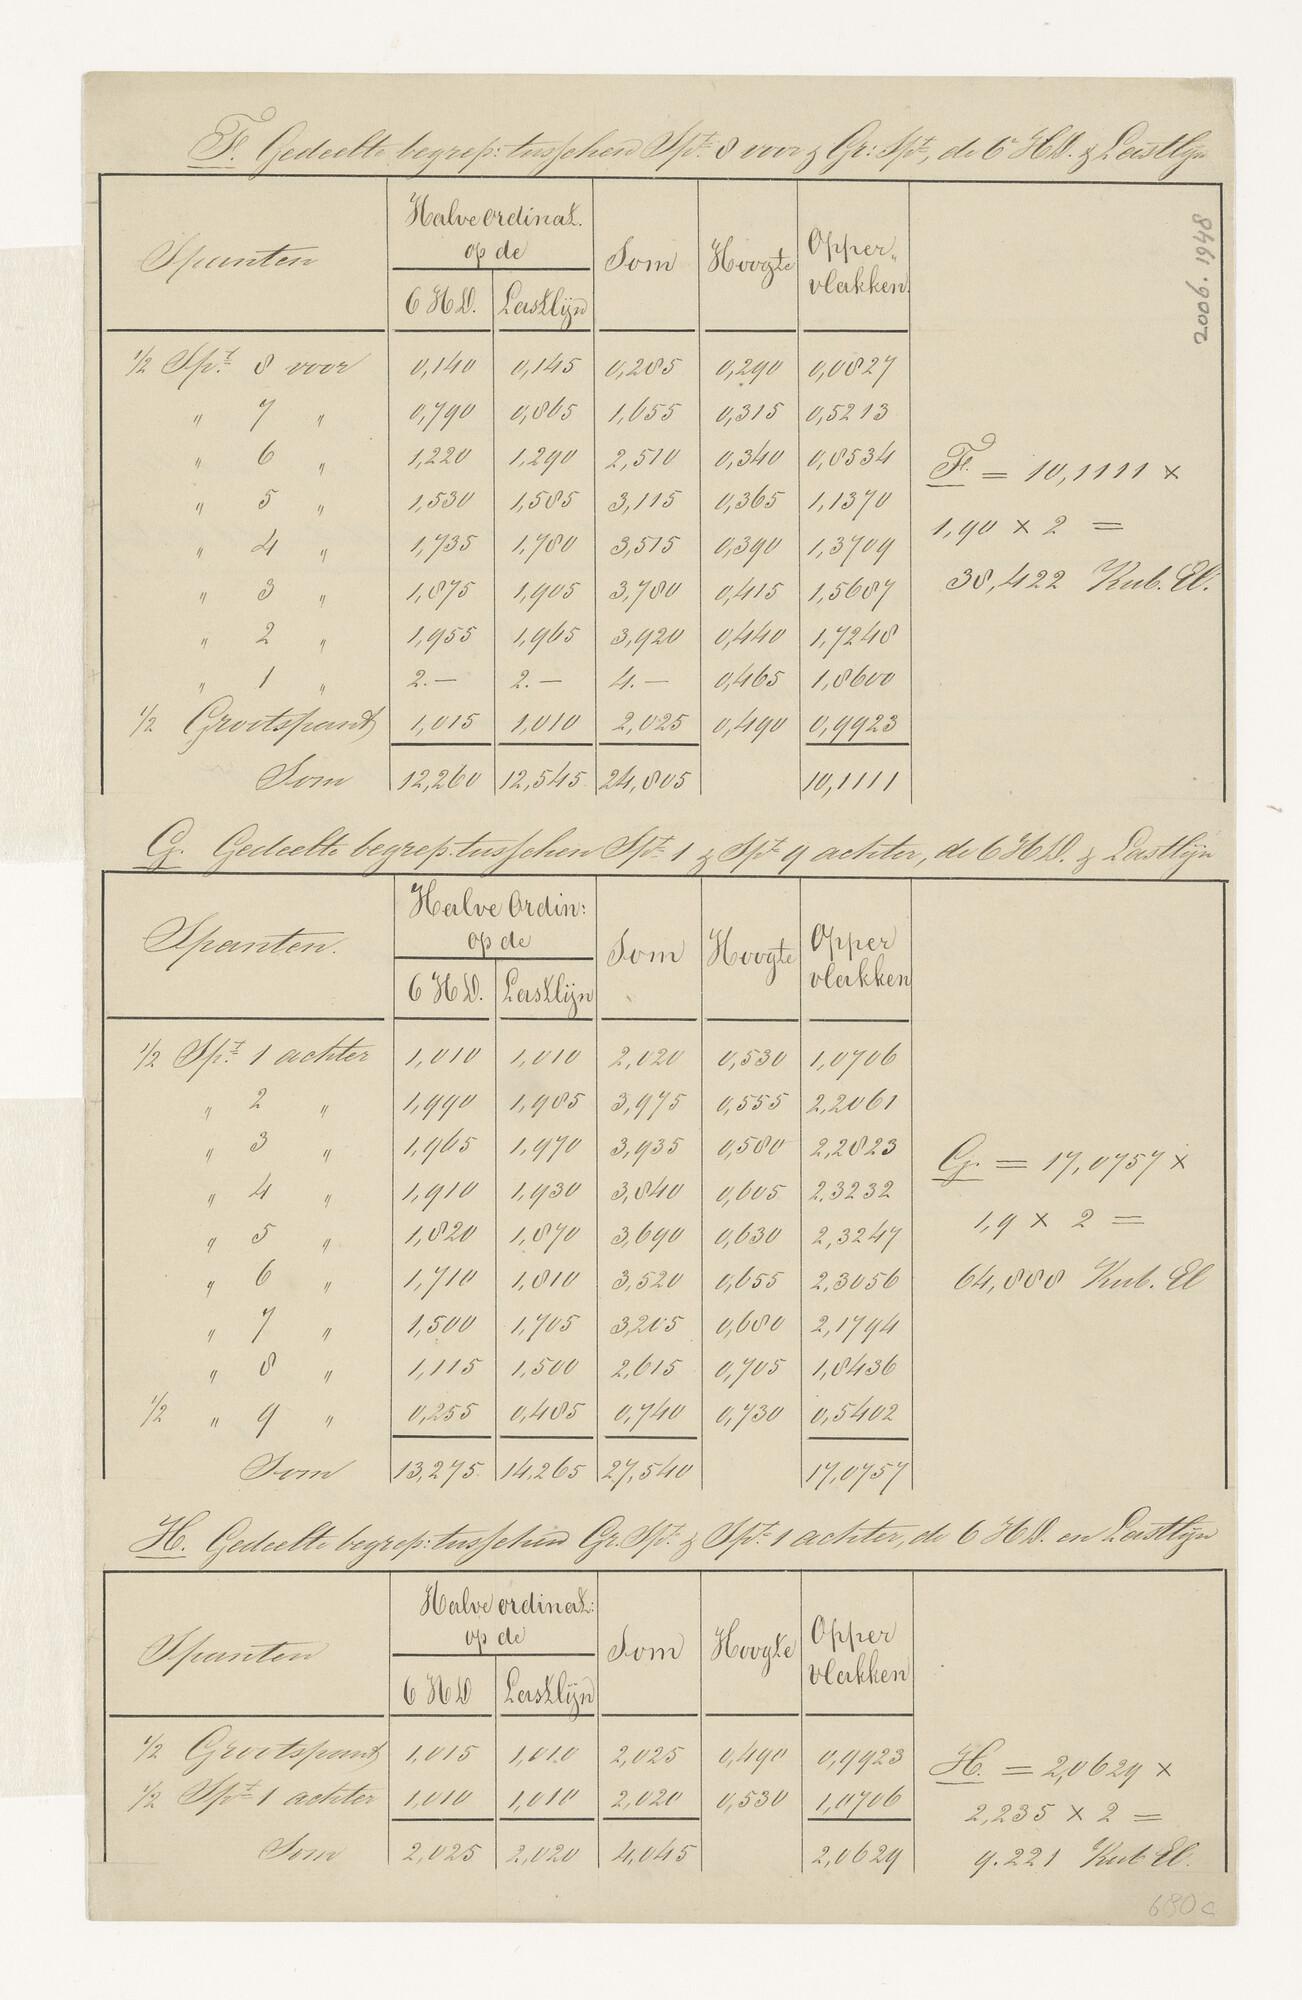 F. Gedeelte begrep: tusschen Spt. 8 voor & Gr: Spt, de 6e H.D. & Lastlijn
Spanten | Halve ordinat. op de | Som | Hoogte | Opper„ vlakken.
6 H D. | Lastlijn
1/2 Spt. 8 voor 0,140 0,145 0,285 0,290 0,0827
" 7 " 0,790 0,865 1,655 0,315 0,5213
" 6 " 1,220 1,290 2,510 0,340 0,8534
" 5 " 1,530 1,585 3,115 0,365 1,1370
" 4 " 1,735 1,780 3,515 0,390 1,3709
" 3 " 1,875 1,905 3,780 0,415 1,5687
" 2 " 1,955 1,965 3,920 0,440 1,7248
" 1 " 2.— 2.— 4.— 0,465 1,8600
1/2 Grootspant 1,015 1,010 2,025 0,490 0,9923
Som 12,260 12,545 24,805 10,1111
F. = 10,1111 ×
1,90 × 2 =
38,422 Kub. El.
2006.1948
G. Gedeelte begrep. tusschen Spt. 1 & Spt 9 achter, de 6 H D. & Lastlijn
Spanten. | Halve Ordin: op de | Som | Hoogte | Opper vlakken
6 H D. | Lastlijn
1/2 Spt. 1 achter 1,010 1,010 2,020 0,530 1,0706
" 2 " 1,990 1,985 3,975 0,555 2,2061
" 3 " 1,965 1,970 3,935 0,580 2,2823
" 4 " 1,910 1,930 3,840 0,605 2.3232
" 5 " 1,820 1,870 3,690 0,630 2,3247
" 6 " 1,710 1,810 3,520 0,655 2,3056
" 7 " 1,500 1,705 3,205 0,680 2,1794
" 8 " 1,115 1,500 2,615 0,705 1,8436
1/2 " 9 " 0,255 0,485 0,740 0,730 0,5402
Som 13,275 14,265 27,540 17,0757
G. = 17,0757 ×
1,9 × 2 =
64,888 Kub. El
H. Gedeelte begrep: tusschen Gr. Spt. & Spt. 1 achter, de 6 H D. en Lastlijn
Spanten | Halve ordinat: op de | Som | Hoogte | Opper vlakken
6 H D | Lastlijn
1/2 Grootspant 1,015 1,010 2,025 0,490 0,9923
1/2 Spt 1 achter 1,010 1,010 2,020 0,530 1,0706
Som 2,025 2,020 4,045 2,0629
H. = 2,0629 ×
2,235 × 2 =
9.221 Kub El.
680c